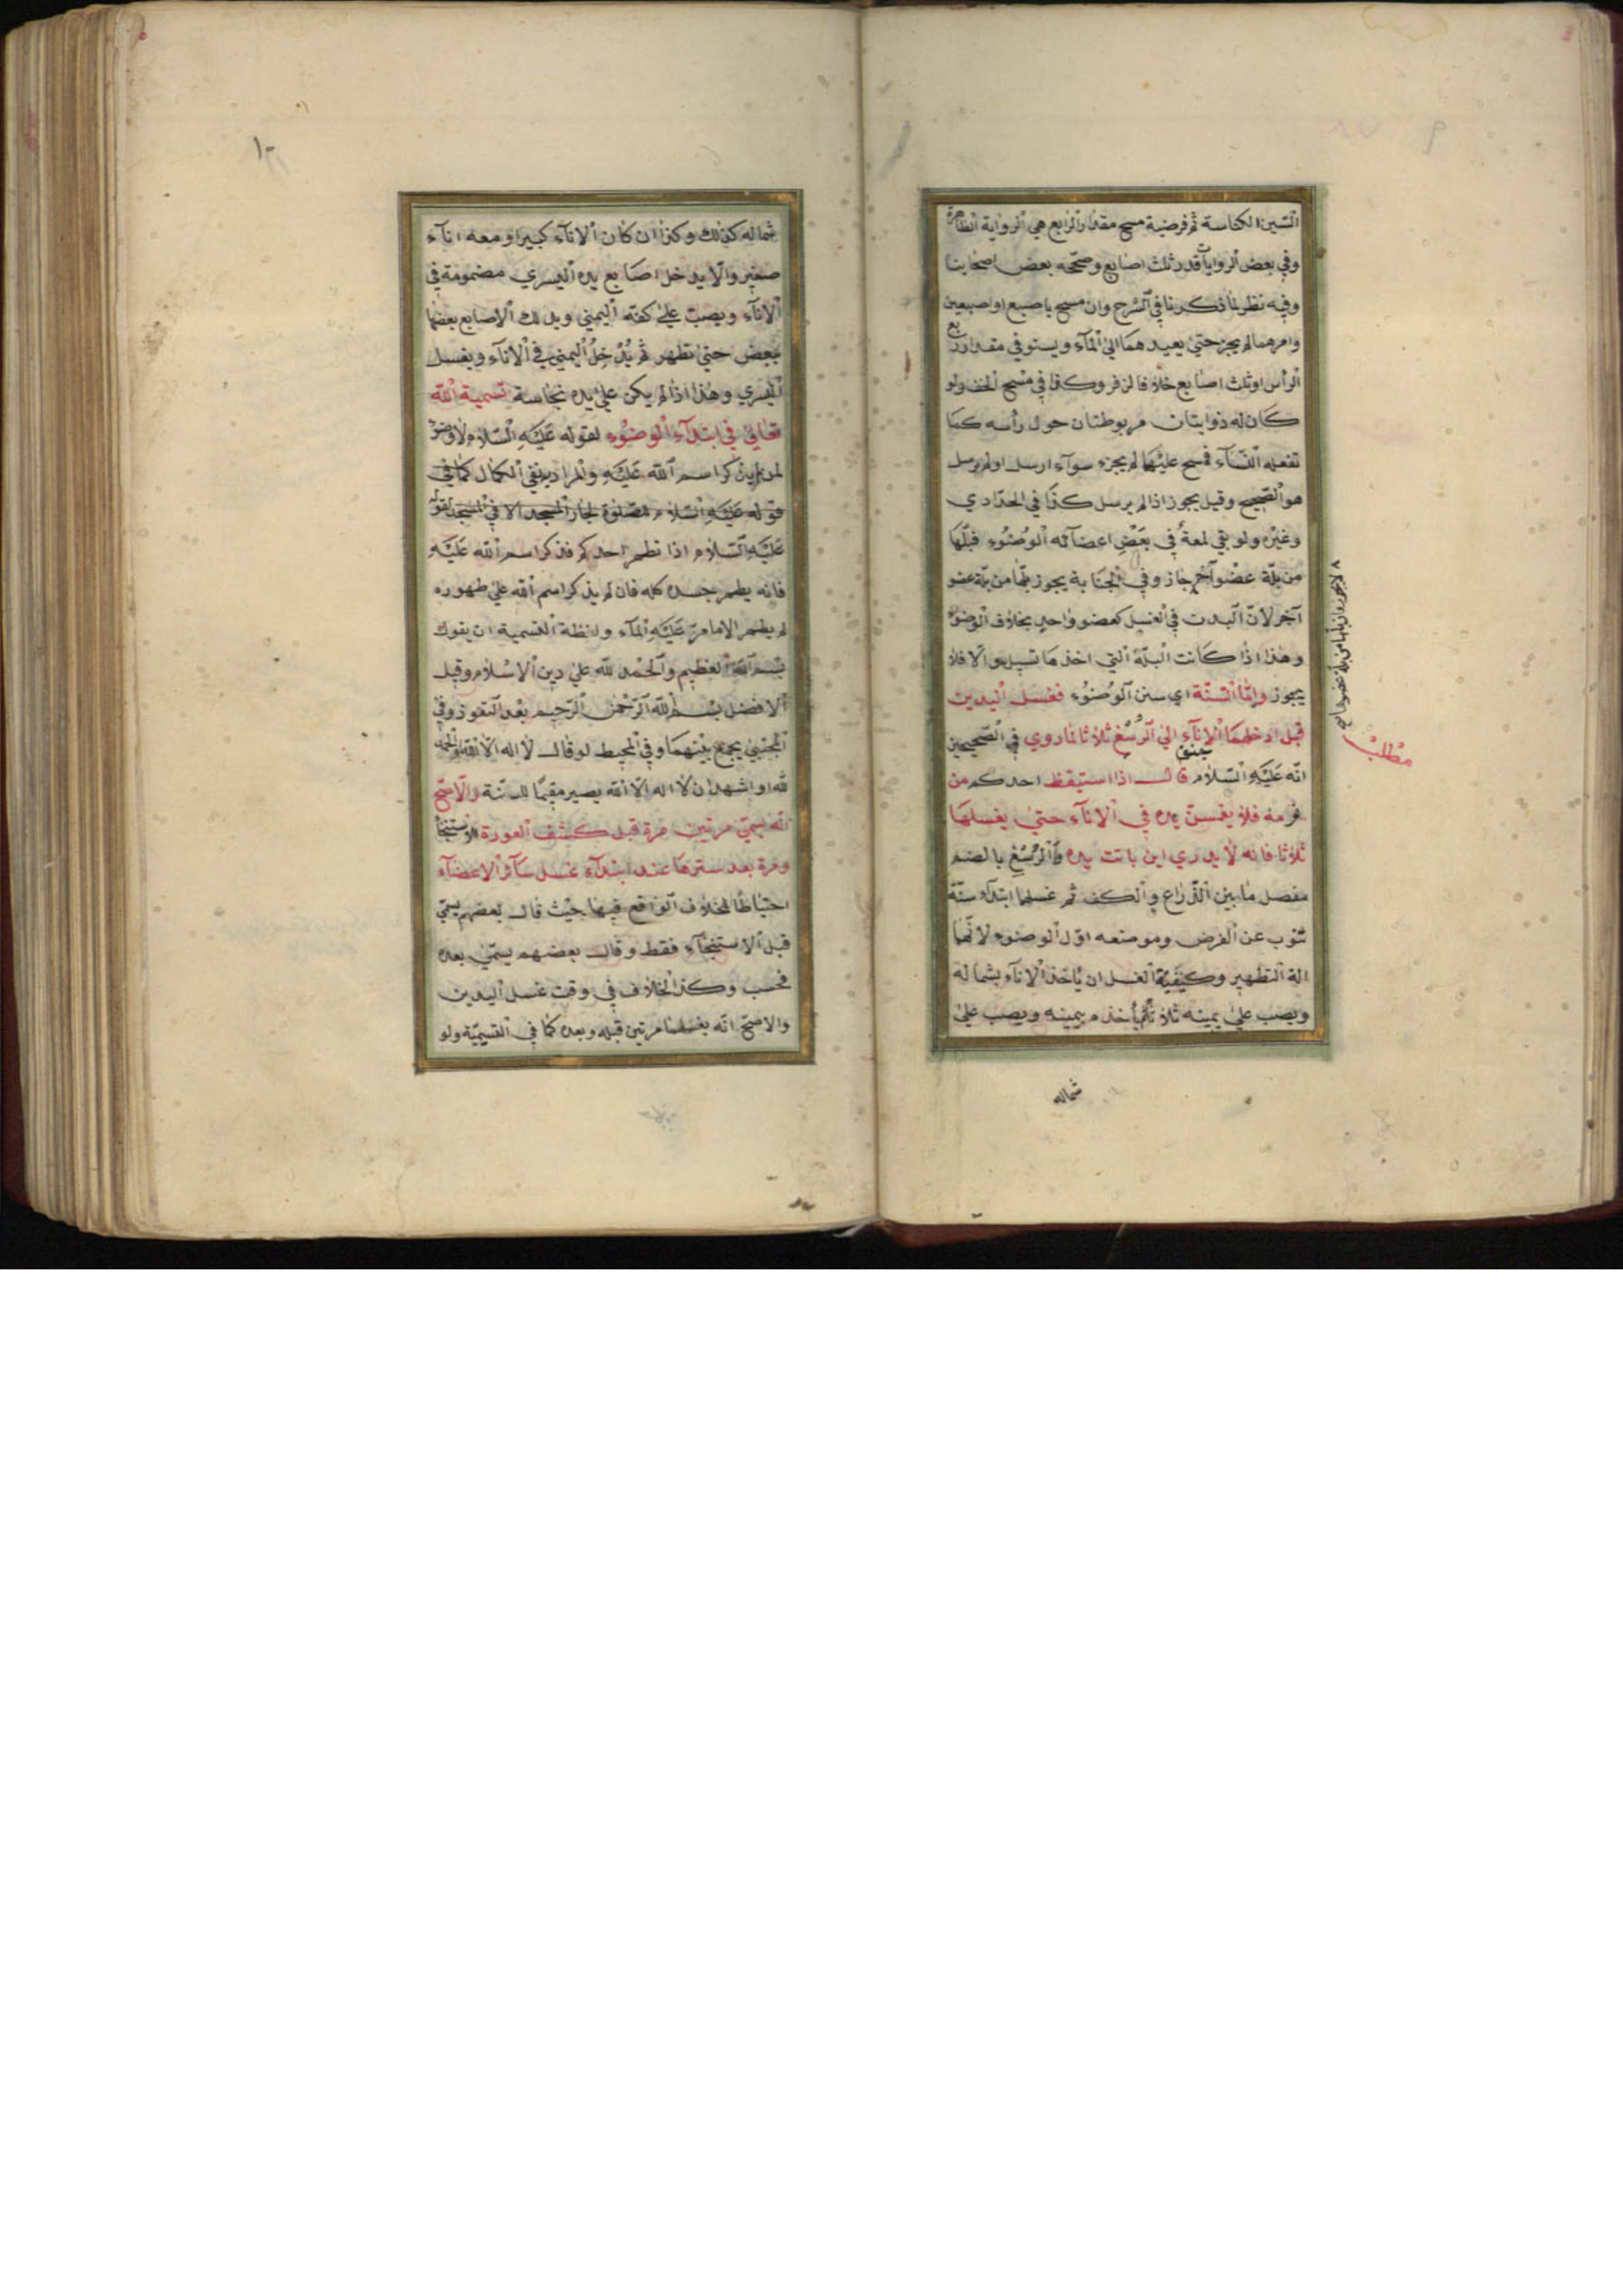 السنن الكناسة ثم فرضية مسح مقدار الرابع هي الرواية الظاهرة
وفي بعض الروايات قدر ثلث اصابع وصححه بعض اصحابنا
وفيه نظر لما ذكرنا في الشرح وان مسح باصبع او اصبعين
وامرهما لم يجز حتى يعيدهما الى المآء ويستوفي مقدار ربع
الرأس او ثلث اصابع خلافا لزفر وكذا في مسح الخف ولو
كان له ذوابتان مربوطتان حول رأسه كما
تفعله النسآء فمسح عليهما لم يجزء سوآء ارسل او لم يرسل
هو الصحيح وقيل يجوز اذا لم يرسل كذا في الحدادي
وغيره ولو بقي لمعة في بعض اعضآئه الوضوء فبلها
من بلة عضو آخر جاز وفي الجنابة يجوز بلها من بلة عضو
آخر لان البدن في الغسل كعضو واحد بخلاف الوضوء
وهذا اذا كانت البلة التي اخذها تسيل والا فلا
يجوز واما السنة اي سنن الوضوء فغسل اليدين
قبل ادخلهما الانآء الى الرسغ ثلاثا لما روي في الصحيحين
انه عليه السلام قال اذا استيقظ احدكم من
نومه فلا يغمسن يده في الانآء حتى يغسلها
ثلاثا فانه لا يدري اين باتت يده والرسغ بالضم
مفصل ما بين الذراع والكف ثم غسلها ابتدآء سنة
تنوب عن الفرض وموضعه اول الوضوء لانهما
الة التطهير وكيفية الغسل ان ياخذ الانآء بشماله
ويصب على يمينه ثلاثا ثم يأخذه بيمينه ويصب على
شماله
لا يجوز ان بلها من بلة عضو
مطلب
١٠
شماله كذلك وكذا ان كان الانآء كبيرا ومعه انآء
صغير والا يدخل اصابع يده اليسري مضمومة في
الانآء ويصب على كفه اليمني ويدلك الاصابع بعضها
ببعض حتى تطهر ثم يدخل اليمني في الانآء ويغسل
اليسري وهذا اذا لم يكن على يده نجاسة تسمية الله
تعالى في ابتدآء الوضوء لقوله عليه السلام لا وضوء
لمن لم يذكر اسم الله عليه والمراد به نفي الكمال كما في
قوله عليه السلام لا صلوة لجار المسجد الا في المسجد لقوله
عليه السلام اذا تطهر احدكم فذكر اسم الله عليه
فانه يطهر جسده كله فان لم يذكر اسم الله على طهوره
لم يطهر الا ما مر عليه المآء ولفظة التسمية ان يقول
بسم الله العظيم والحمد لله على دين الاسلام وقيل
الافضل بسم الله الرحمن الرحيم بعد التعوذ وفي
المجتبي يجمع بينهما وفي المحيط لو قال لا اله الا الله والحمد
لله او اشهد ان لا اله الا الله يصير مقيما للسنة والاصح
انه يسمي مرتين مرة قبل كشف العورة للاستنجآ
ومرة بعد سترها عند ابتدآء غسل سآئر الاعضآء
احتياطا للخلاف الواقع فيها حيث قال بعضهم يسمي
قبل الاستنجآء فقط وقال بعضهم يسمي بعده
فحسب وكذا الخلاف في وقت غسل اليدين
والاصح انه يغسلهما مرتين قبله وبعده كما في التسمية ولو